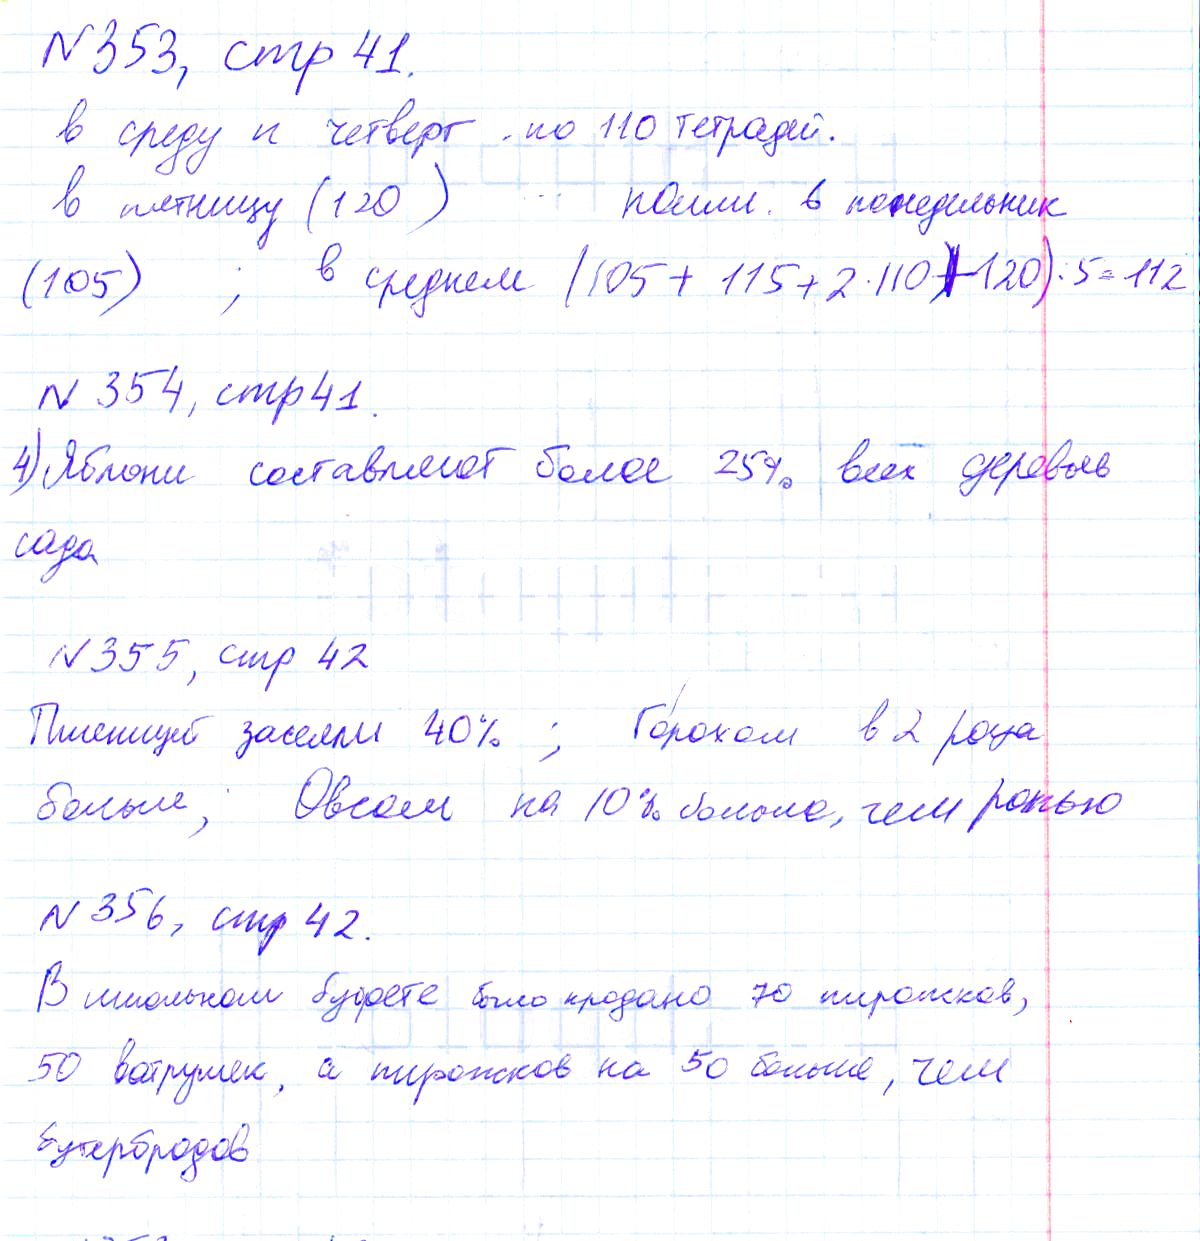 N353, стр 41.
в среду и четверг - по 110 тетрадей.
в пятницу (120) наим. в понедельник
(105) ; в среднем (105 + 115 + 2·110 + 120) : 5 = 112
N 354, стр 41.
4) Яблони составляют более 25% всех деревьев
сада
N355, стр 42
Пшеницей засеяли 40% ; Горохом в 2 раза
больше; Овсом на 10% больше, чем рожью
N 356, стр 42.
В школьном буфете было продано 70 пирожков,
50 ватрушек, а пирожков на 50 больше, чем
бутербродов